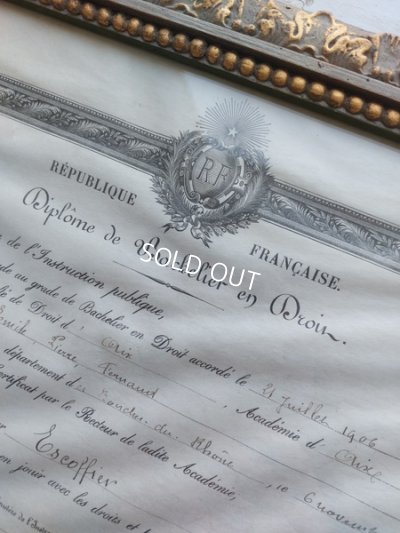 RF
RÉPUBLIQUE FRANÇAISE.
Diplôme de Bachelier en Droit.
SOLD OUT
de l'Instruction publique,
au grade de Bachelier en Droit accordé le 21 Juillet 1906
de Droit d' Aix , Académie d' Aix
Pierre, Fernand
département d Bouches-du-Rhône , le 6 novem
Certificat par le Recteur de ladite Académie,
Escoffier
en jouir avec les droits et